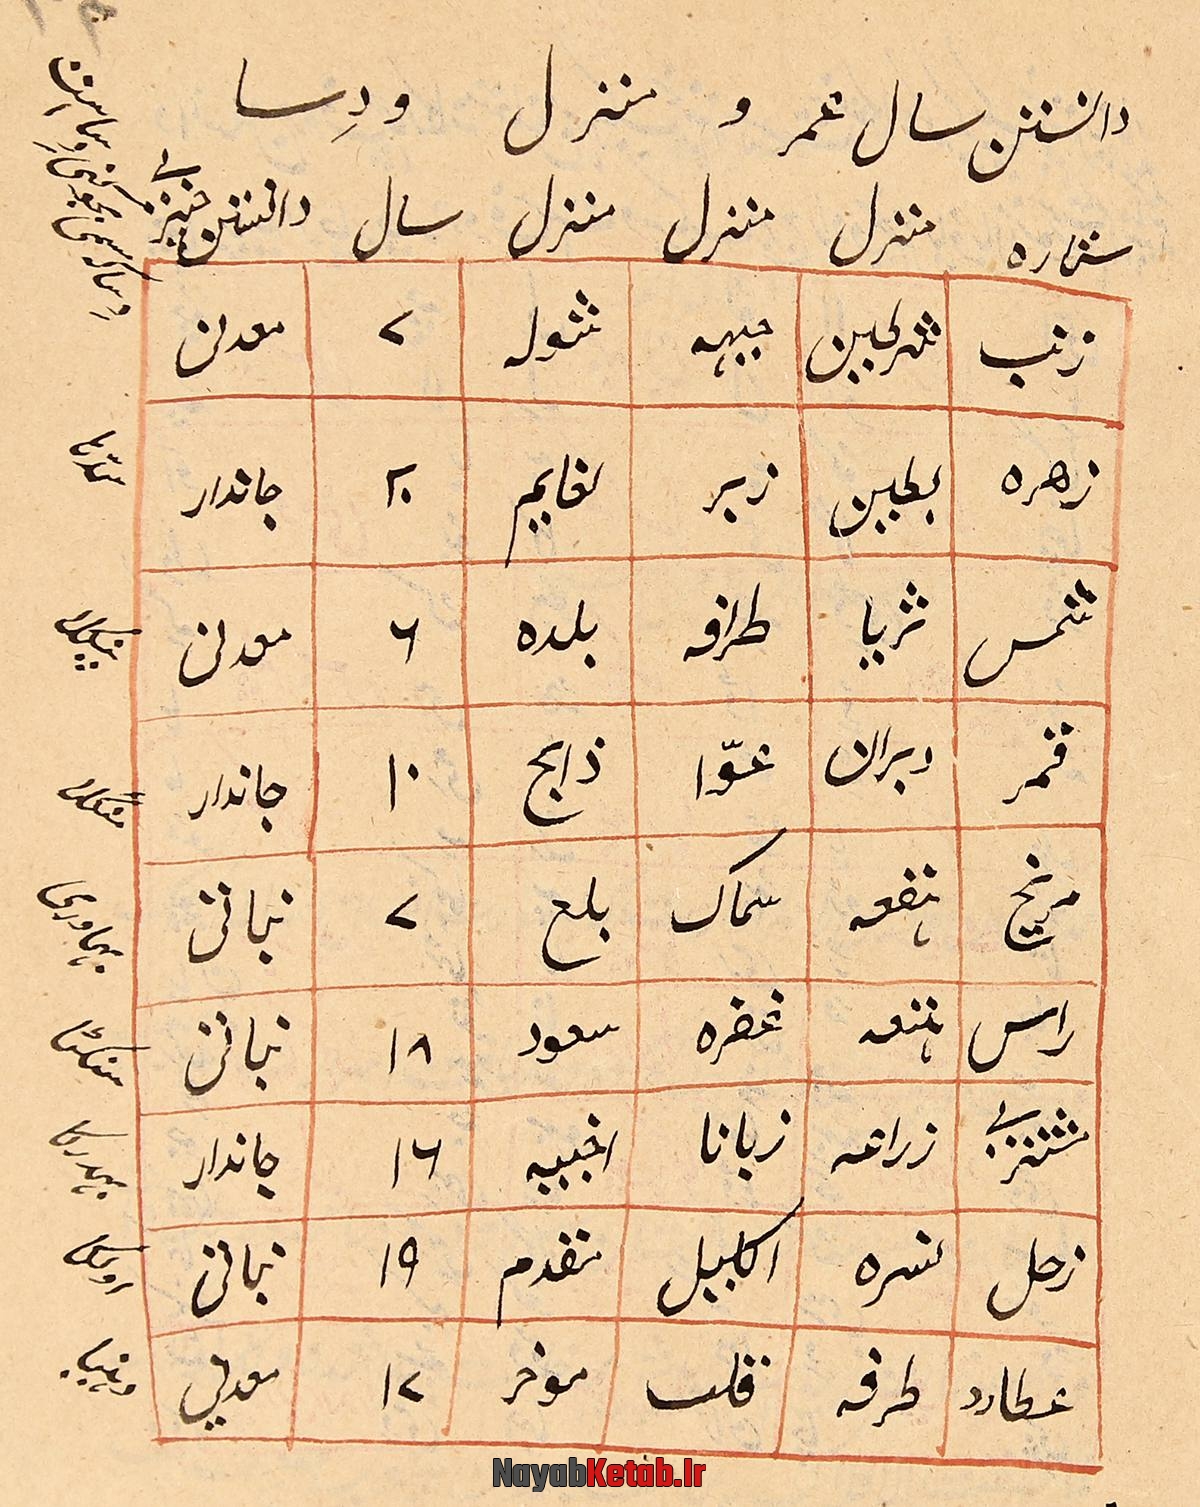 دانستن سال عمر و منزل و دسا
ستاره منزل منزل منزل سال دانستن چیزی
ذنب شرطین جبهه شوله ۷ معدنی
زهره بطین زبر نعایم ۲۰ جاندار
شمس ثریا طرافه بلده ۶ معدنی
قمر دبران عوّا ذابح ۱۰ جاندار
مریخ هقعه سماک بلع ۷ نباتی
راس هنعه غفره سعود ۱۸ نباتی
مشتری زراعه زبانا اخبیه ۱۶ جاندار
زحل نسره اکلیل مقدم ۱۹ نباتی
عطارد طرفه قلب موخر ۱۷ معدنی
NayabKetab.Ir